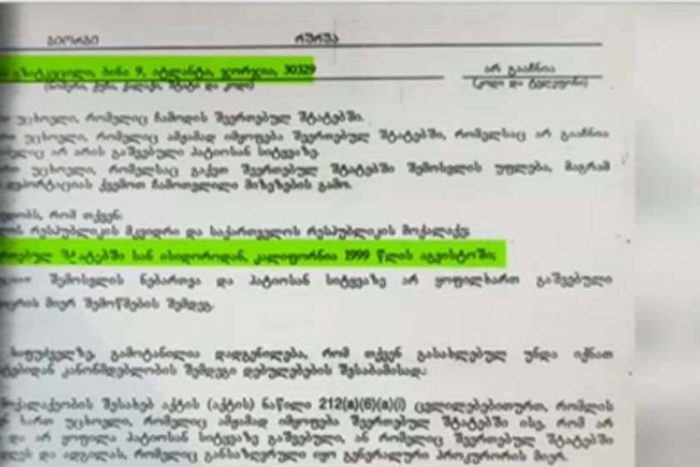 გიორგი რურუა
ბინა 9, ატლანტა, ჯორჯია, 30329 არ გააჩნია
(ნომერი, ქუჩა, ქალაქი, შტატი და კოდი) (კოდი და ტელეფონი)
უცხოელი, რომელიც ჩამოდის შეერთებულ შტატებში.
უცხოელი, რომელიც ამჟამად იმყოფება შეერთებულ შტატებში, რომელსაც არ გააჩნია
არ არის გაშვებული პატიოსან სიტყვაზე.
უცხოელი, რომელსაც გაქვთ შეერთებულ შტატებში შემოსვლის უფლება, მაგრამ
დეპორტაციას ქვემოთ ჩამოთვლილი მიზეზების გამო.
რომ თქვენ:
რესპუბლიკის მკვიდრი და საქართველოს რესპუბლიკის მოქალაქე;
შტატებში სან ისიდროდან, კალიფორნია 1999 წლის აგვისტოში;
შემოსვლის ნებართვა და პატიოსან სიტყვაზე არ ყოფილხართ გაშვებული
მიერ შემოწმების შემდეგ.
საფუძველზე, გამოტანილია დადგენილება, რომ თქვენ გასახლებულ უნდა იქნათ
კანონმდებლობის შემდეგი დებულებების შესაბამისად:
მოქალაქეობის შესახებ აქტის (აქტის) ნაწილი 212(a)(6)(a)(i) ცვლილებებითურთ, რომლის
ხართ უცხოელი, რომელიც ამჟამად იმყოფება შეერთებულ შტატებში ისე, რომ არ
და არ ყოფილა პატიოსან სიტყვაზე გაშვებული, ან რომელიც შეერთებულ შტატებში
და ადგილას, რომელიც განსაზღვრული იყო გენერალური პროკურორის მიერ.